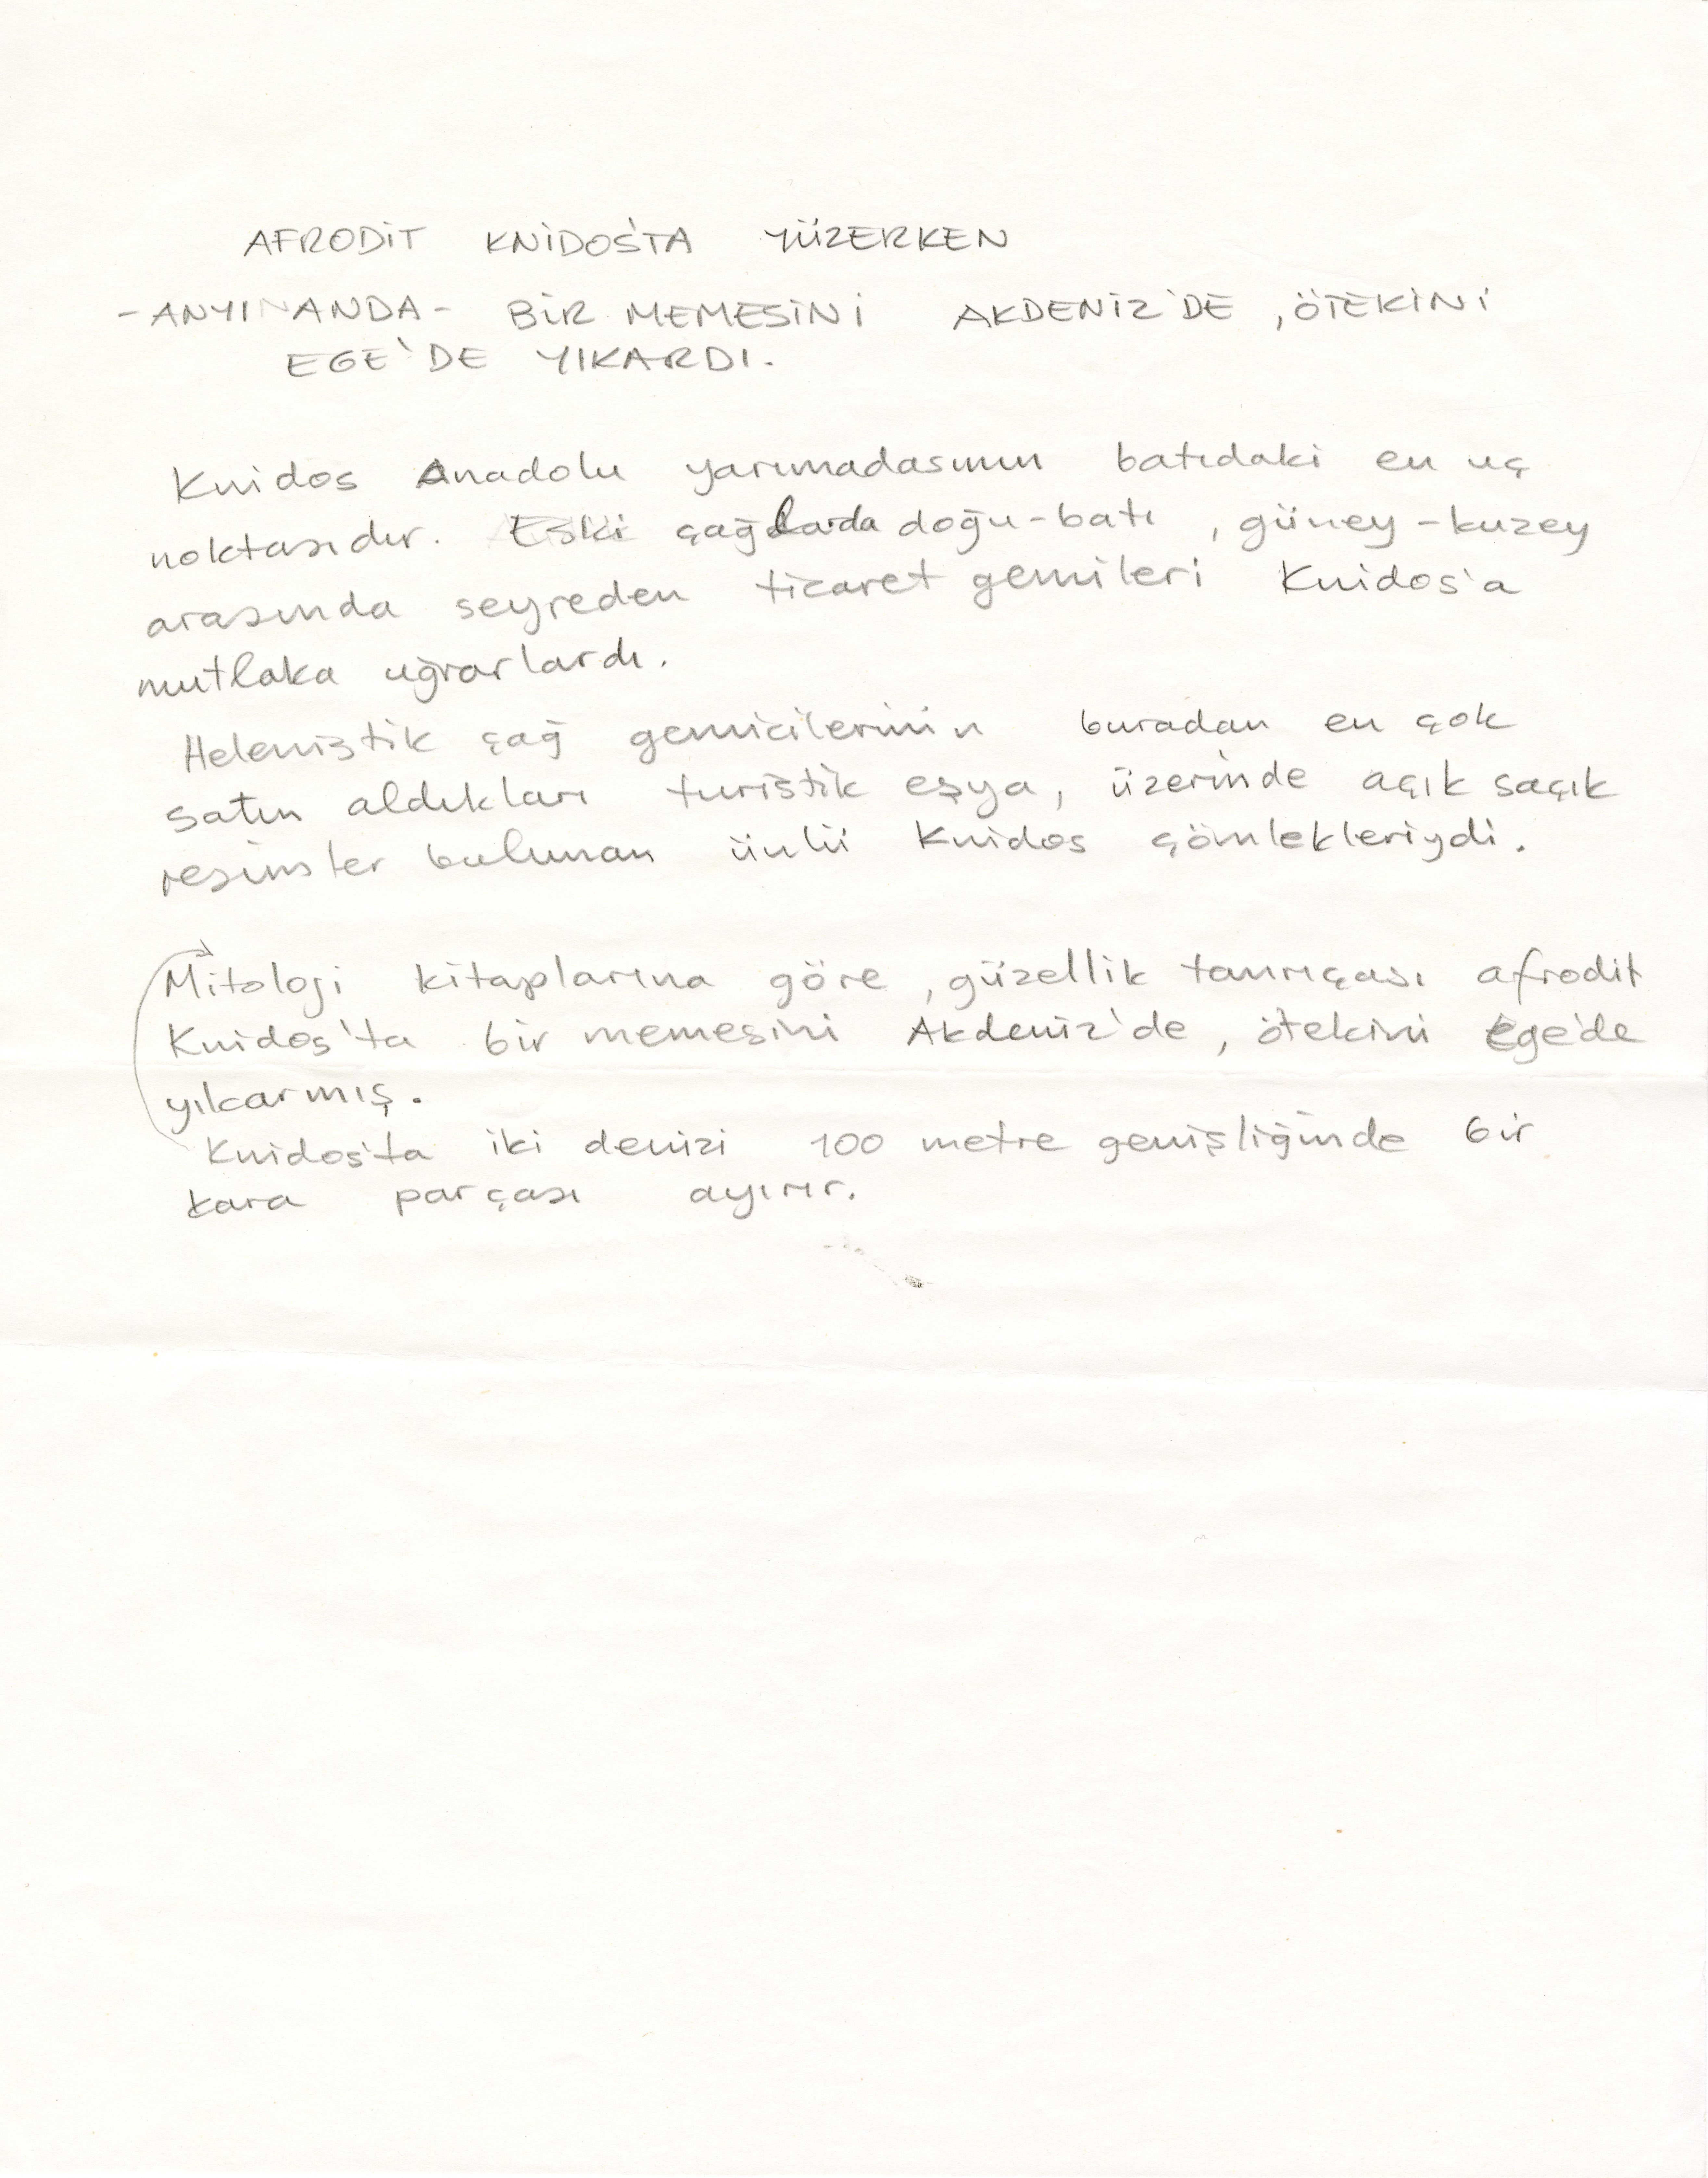 AFRODİT KNİDOS'TA YÜZERKEN
-ANYI ANDA- BİR MEMESİNİ AKDENİZ'DE, ÖTEKİNİ
EGE'DE YIKARDI.
Knidos Anadolu yarımadasının batıdaki en uç
noktasıdır. Eski çağlarda doğu-batı, güney-kuzey
arasında seyreden ticaret gemileri Knidos'a
mutlaka uğrarlardı.
Helenistik çağ gemicilerinin buradan en çok
satın aldıkları turistik eşya, üzerinde açık saçık
resimler bulunan ünlü Knidos çömlekleriydi.
Mitoloji kitaplarına göre, güzellik tanrıçası afrodit
Knidos'ta bir memesini Akdeniz'de, ötekini Ege'de
yıkarmış.
Knidos'ta iki denizi 100 metre genişliğinde bir
kara parçası ayırır.